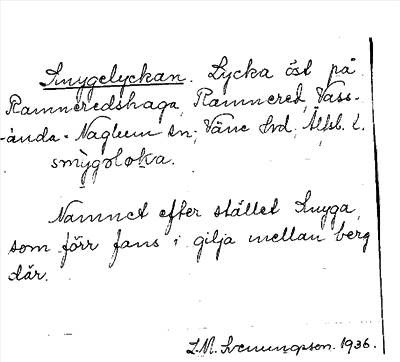 Smygelyckan. Lycka öst på
Ramneredshaga, Ramnered, Vass-
-ända-Naglum sn; Väne hd; Älfsb. l.
smỳgəloka.
Namnet efter stället Smyga,
som förr fans i gilja mellan berg
där.
L.M. Svenungsson. 1936.